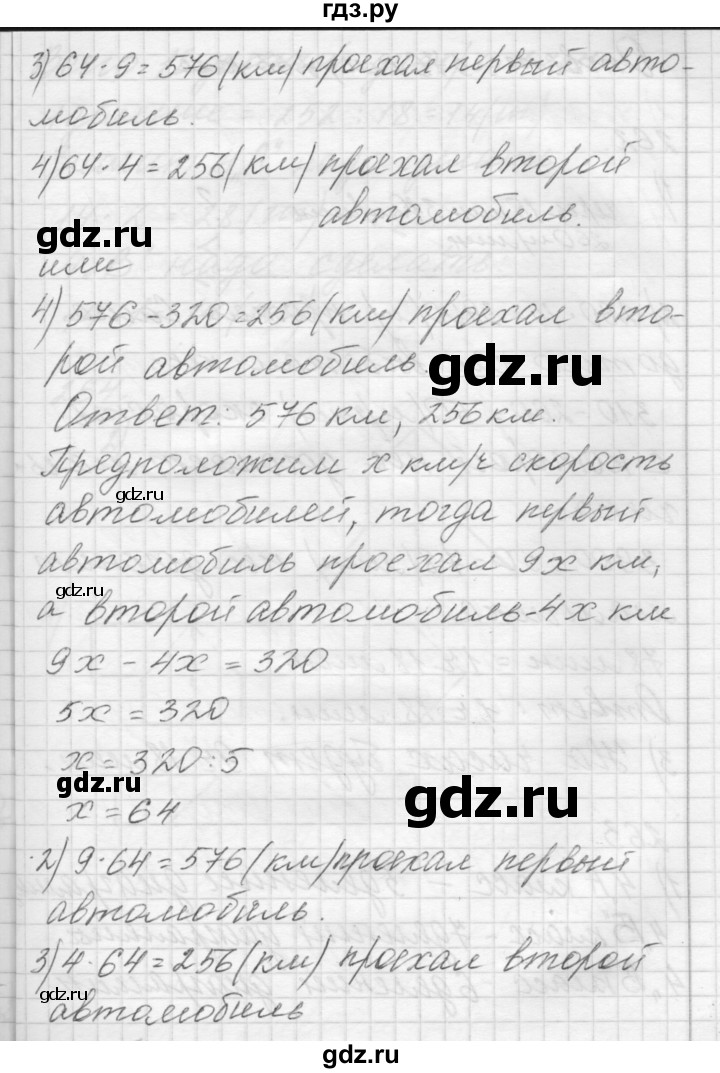 гдз.ру
3) 64·9=576(км) проехал первый авто-
мобиль.
4) 64·4=256(км) проехал второй
автомобиль.
gdz.ru
или
4) 576-320=256(км) проехал вто-
рой автомобиль.
gdz.ru
Ответ: 576 км, 256км.
Предположим x км/ч скорость
gdz.ru
автомобилей, тогда первый
автомобиль проехал 9x км,
gdz.ru
а второй автомобиль-4x км
9x - 4x = 320
5x = 320
x = 320:5
gdz.ru
gdz.ru
x = 64
2) 9·64=576(км) проехал первый
автомобиль.
3) 4·64=256(км) проехал второй
gdz.ru
автомобиль
gdz.ru